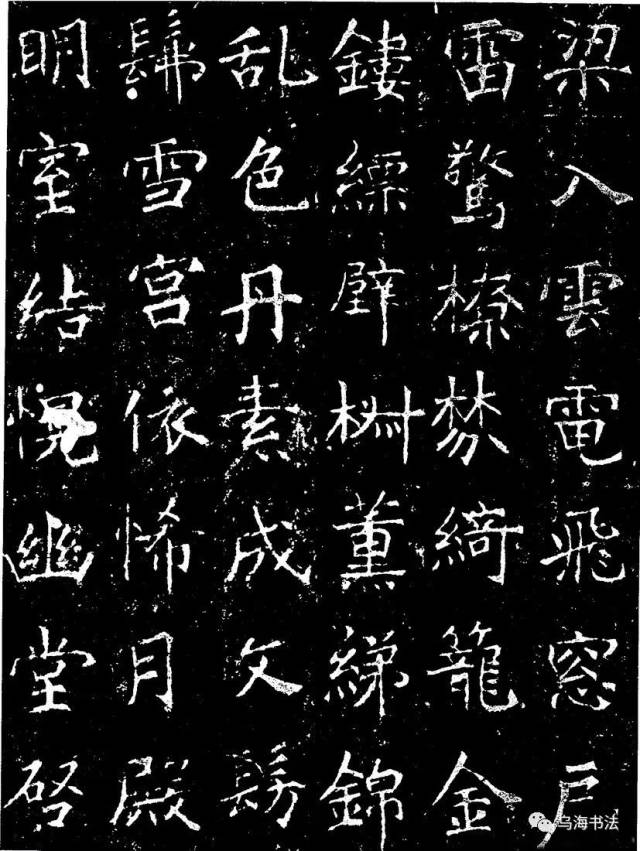 梁入雲電飛窓户
雷驚橑棼綺籠金
鏤縹壁樹薰綈錦
乱色丹素成文髣
髴雪宮依悕月殿
明室結愰幽堂啓
乌海书法